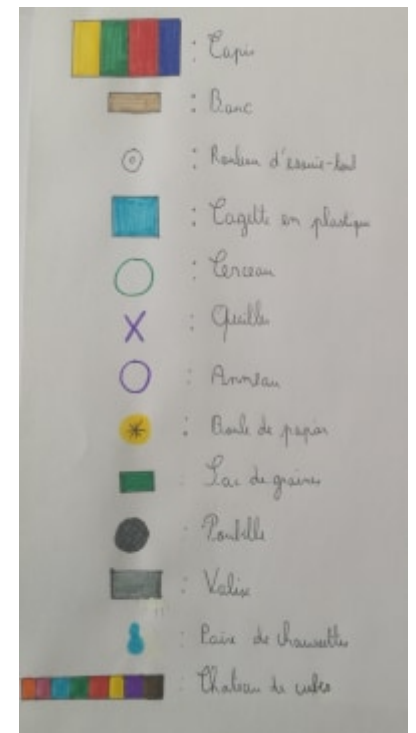 : Tapis
: Banc
: Rouleau d'essuie-tout
: Cagette en plastique
: Cerceau
: Quilles
: Anneau
: Boule de papier
: Sac de graines
: Poubelle
: Valise
: Paire de chaussettes
: Château de cubes